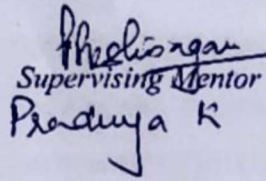 Supervising Mentor
Pradnya K